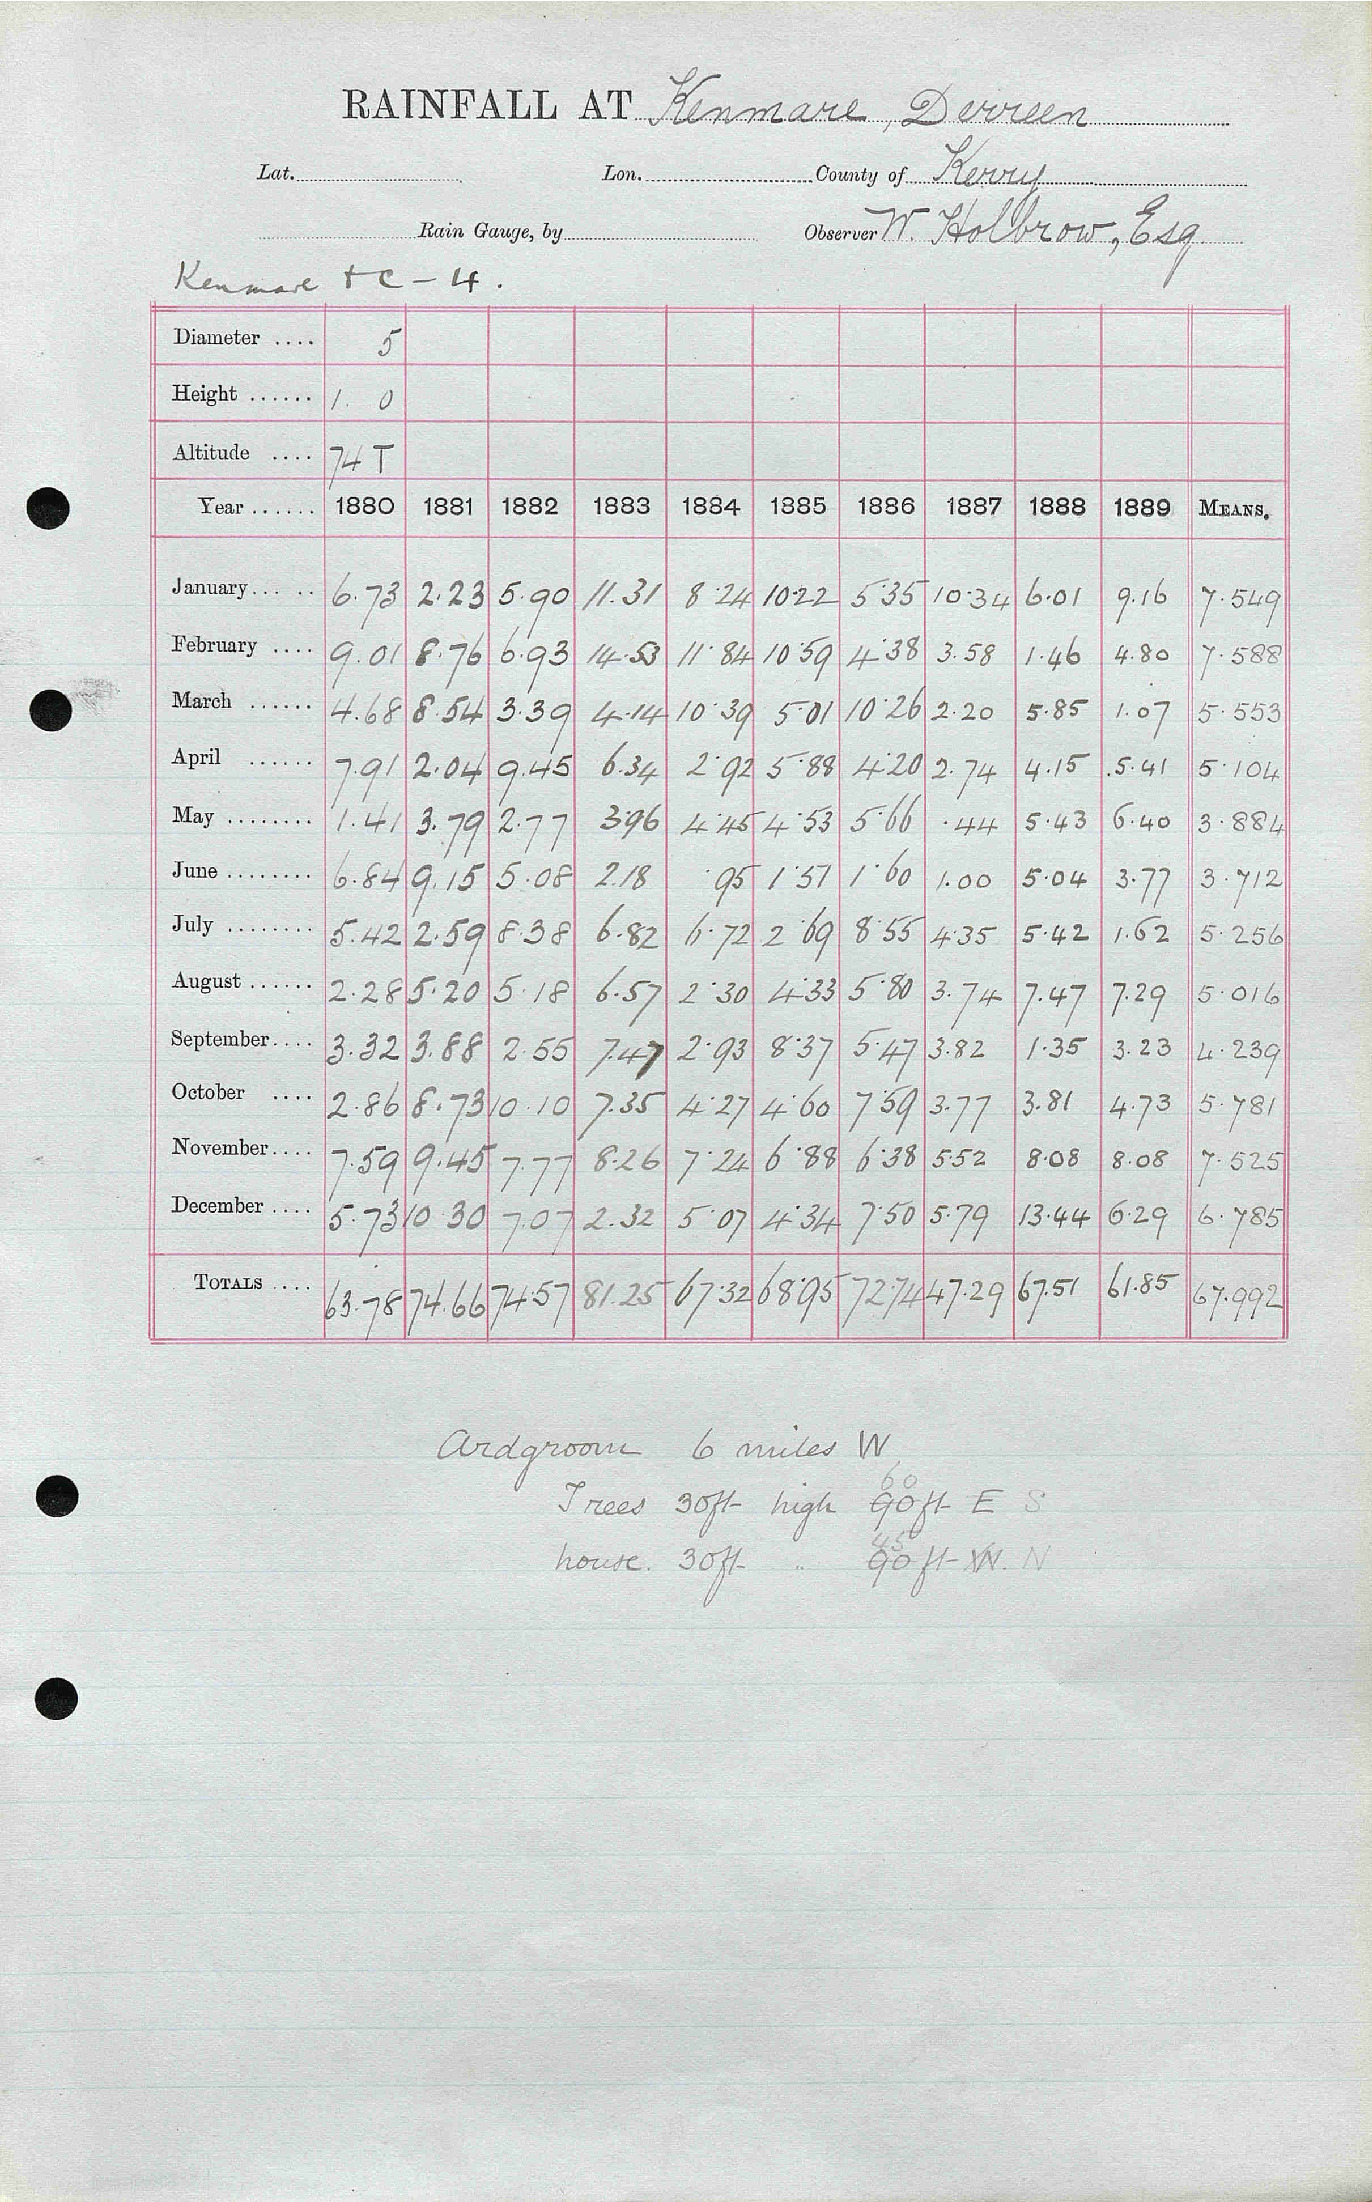 RAINFALL AT Kenmare, Derreen
Lat. Lon. County of Kerry
Rain Gauge, by Observer W. Holbrow, Esq.
Kenmare + C - 4.
Diameter .... 5
Height ...... 1. 0
Altitude .... 74 T
Year ...... 1880 1881 1882 1883 1884 1885 1886 1887 1888 1889 MEANS.
January ... .. 6.73 2.23 5.90 11.31 8.24 10.22 5.35 10.34 6.01 9.16 7.549
February .... 9.01 8.76 6.93 14.53 11.84 10.59 4.38 3.58 1.46 4.80 7.588
March ...... 4.68 8.54 3.39 4.14 10.39 5.01 10.26 2.20 5.85 1.07 5.553
April ...... 7.91 2.04 9.45 6.34 2.92 5.88 4.20 2.74 4.15 5.41 5.104
May ........ 1.41 3.79 2.77 3.96 4.45 4.53 5.66 .44 5.43 6.40 3.884
June ........ 6.84 9.15 5.08 2.18 .95 1.51 1.60 1.00 5.04 3.77 3.712
July ........ 5.42 2.59 8.38 6.82 6.72 2.69 8.55 4.35 5.42 1.62 5.256
August ...... 2.28 5.20 5.18 6.57 2.30 4.33 5.80 3.74 7.47 7.29 5.016
September.... 3.32 3.88 2.55 7.47 2.93 8.37 5.47 3.82 1.35 3.23 4.239
October .... 2.86 8.73 10.10 7.35 4.27 4.60 7.59 3.77 3.81 4.73 5.781
November.... 7.59 9.45 7.77 8.26 7.24 6.88 6.38 5.52 8.08 8.08 7.525
December .... 5.73 10.30 7.07 2.32 5.07 4.34 7.50 5.79 13.44 6.29 6.785
TOTALS .... 63.78 74.66 74.57 81.25 67.32 68.95 72.74 47.29 67.51 61.85 67.992
Ardgroom 6 miles W
60
Trees 30ft high 90ft E S
45
house. 30ft " 90ft W. N